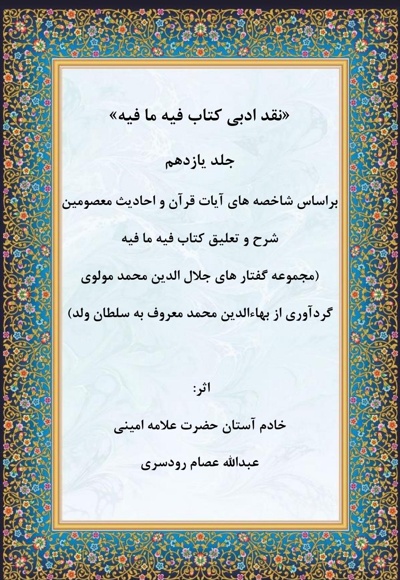 «نقد ادبی کتاب فیه ما فیه»
جلد یازدهم
براساس شاخصه های آیات قرآن و احادیث معصومین
شرح و تعلیق کتاب فیه ما فیه
(مجموعه گفتار های جلال الدین محمد مولوی
گردآوری از بهاءالدین محمد معروف به سلطان ولد)
اثر:
خادم آستان حضرت علامه امینی
عبدالله عصام رودسری